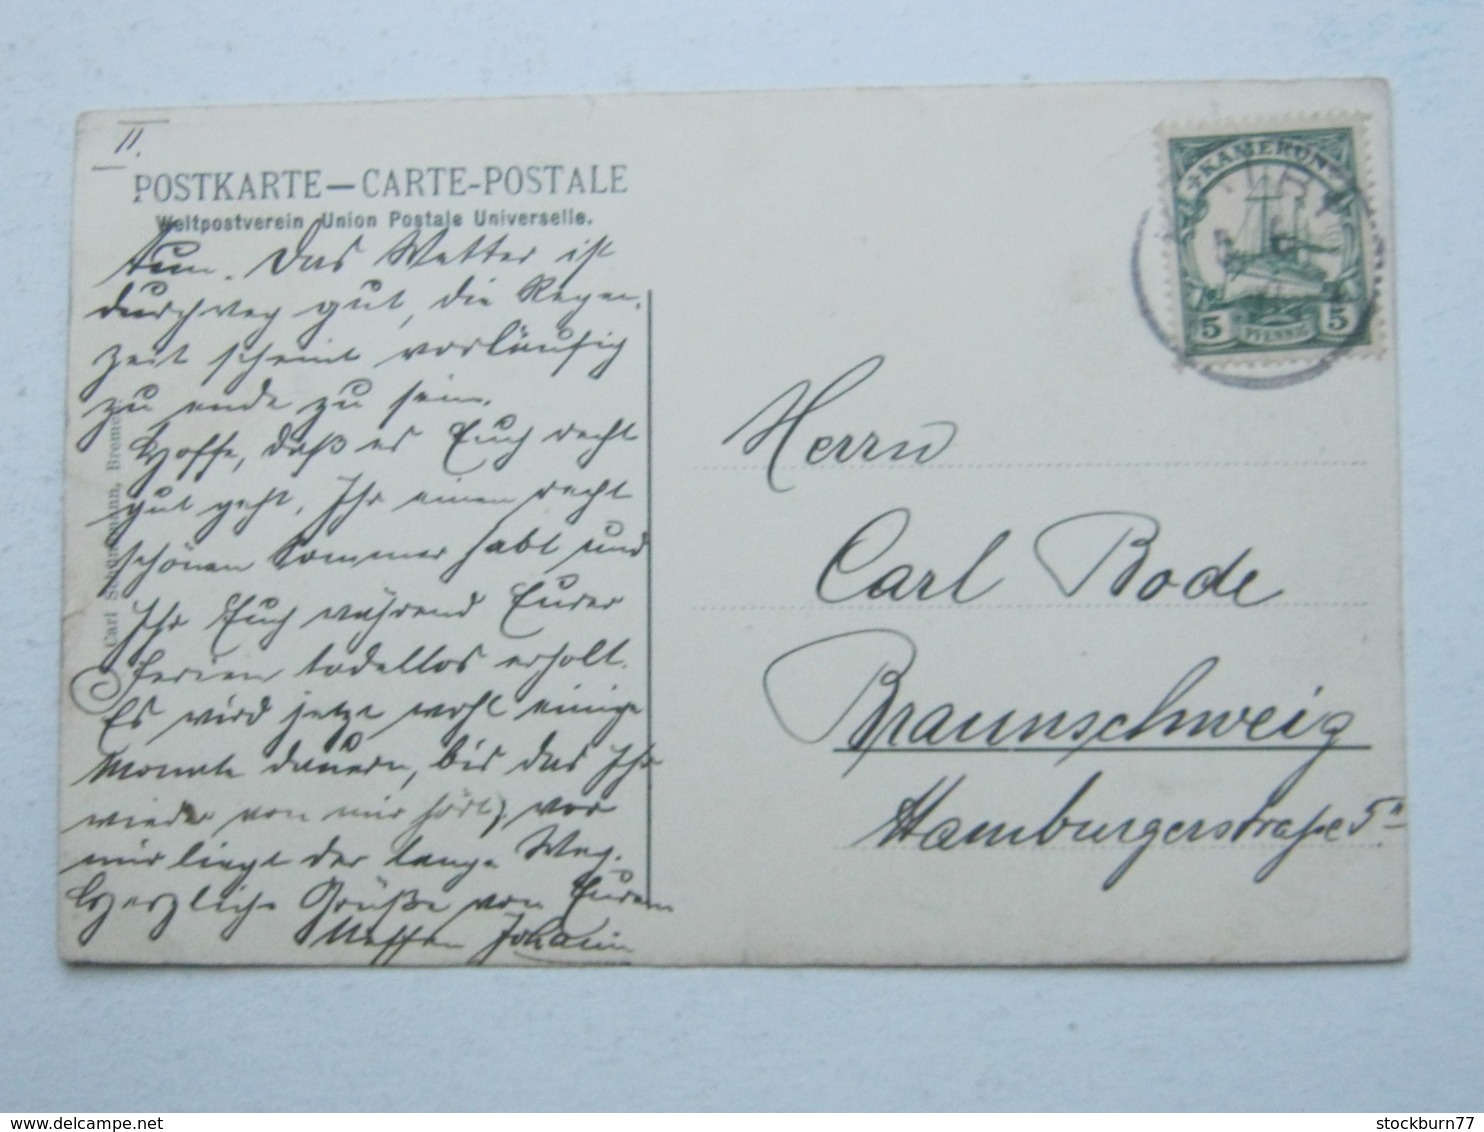 II.
POSTKARTE—CARTE-POSTALE
Weltpostverein Union Postale Universelle.
tun. Das Wetter ist
durchweg gut, die Regen-
zeit scheint vorläufig
zu ende zu sein.
Hoffe, daß es Euch recht
gut geht, Ihr einen recht
schönen Sommer habt und
Ihr Euch während Eurer
Ferien tadellos erholt.
Es wird jetzt wohl einige
Monate dauern, bis das Ihr
wieder von mir hört, vor
mir liegt der lange Weg.
Herzliche Grüße von Eurem
Neffen Johann
Carl Schünemann, Bremen
KAMERUN
5 PFENNIG 5
Herrn
Carl Bode
Braunschweig
Hamburgerstraße 5
stockburn77